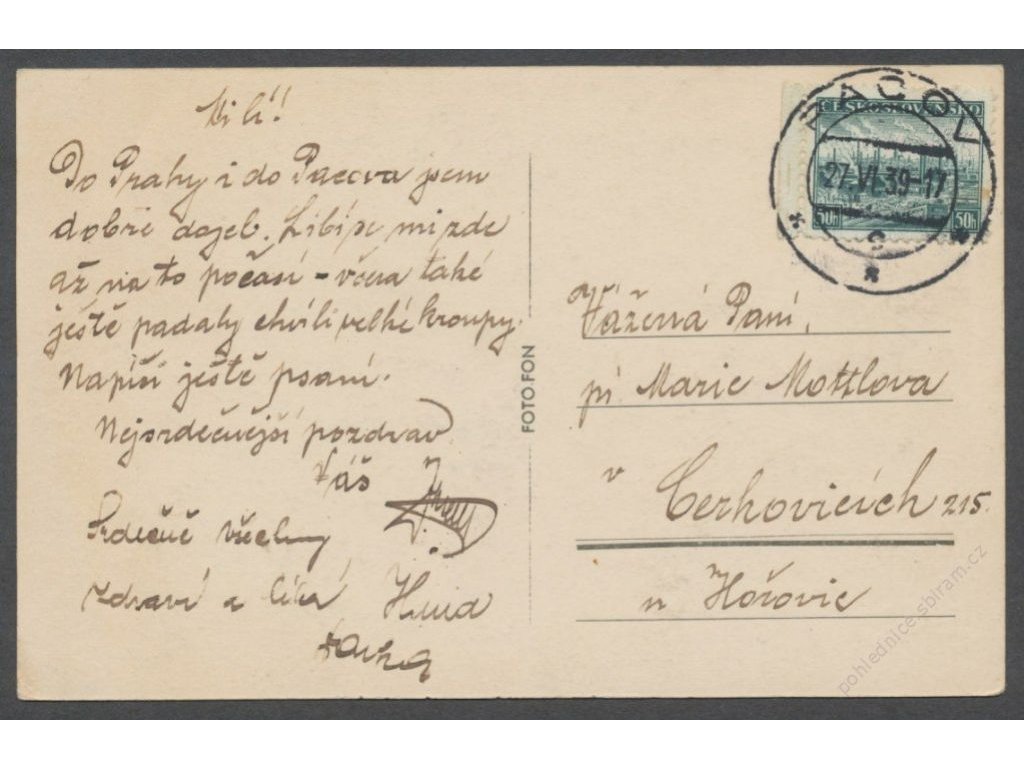 Milí!!
Do Prahy i do Pacova jsem
dobře dojel. Líbí se mi zde
až na to počasí – včera také
ještě padaly chvíli velké kroupy.
Napíši ještě psaní.
Nejsrdečnější pozdrav
Váš
Srdečně všechny
zdraví a líbá
FOTOFON
PACOV
ČESKOSLOVENSKO
27.VI.39-17
50h 50h
c
Vážená Paní,
pí Marie Mottlova
v Cerhovicích 215.
u Hořovic
pohlednice.sbiram.cz